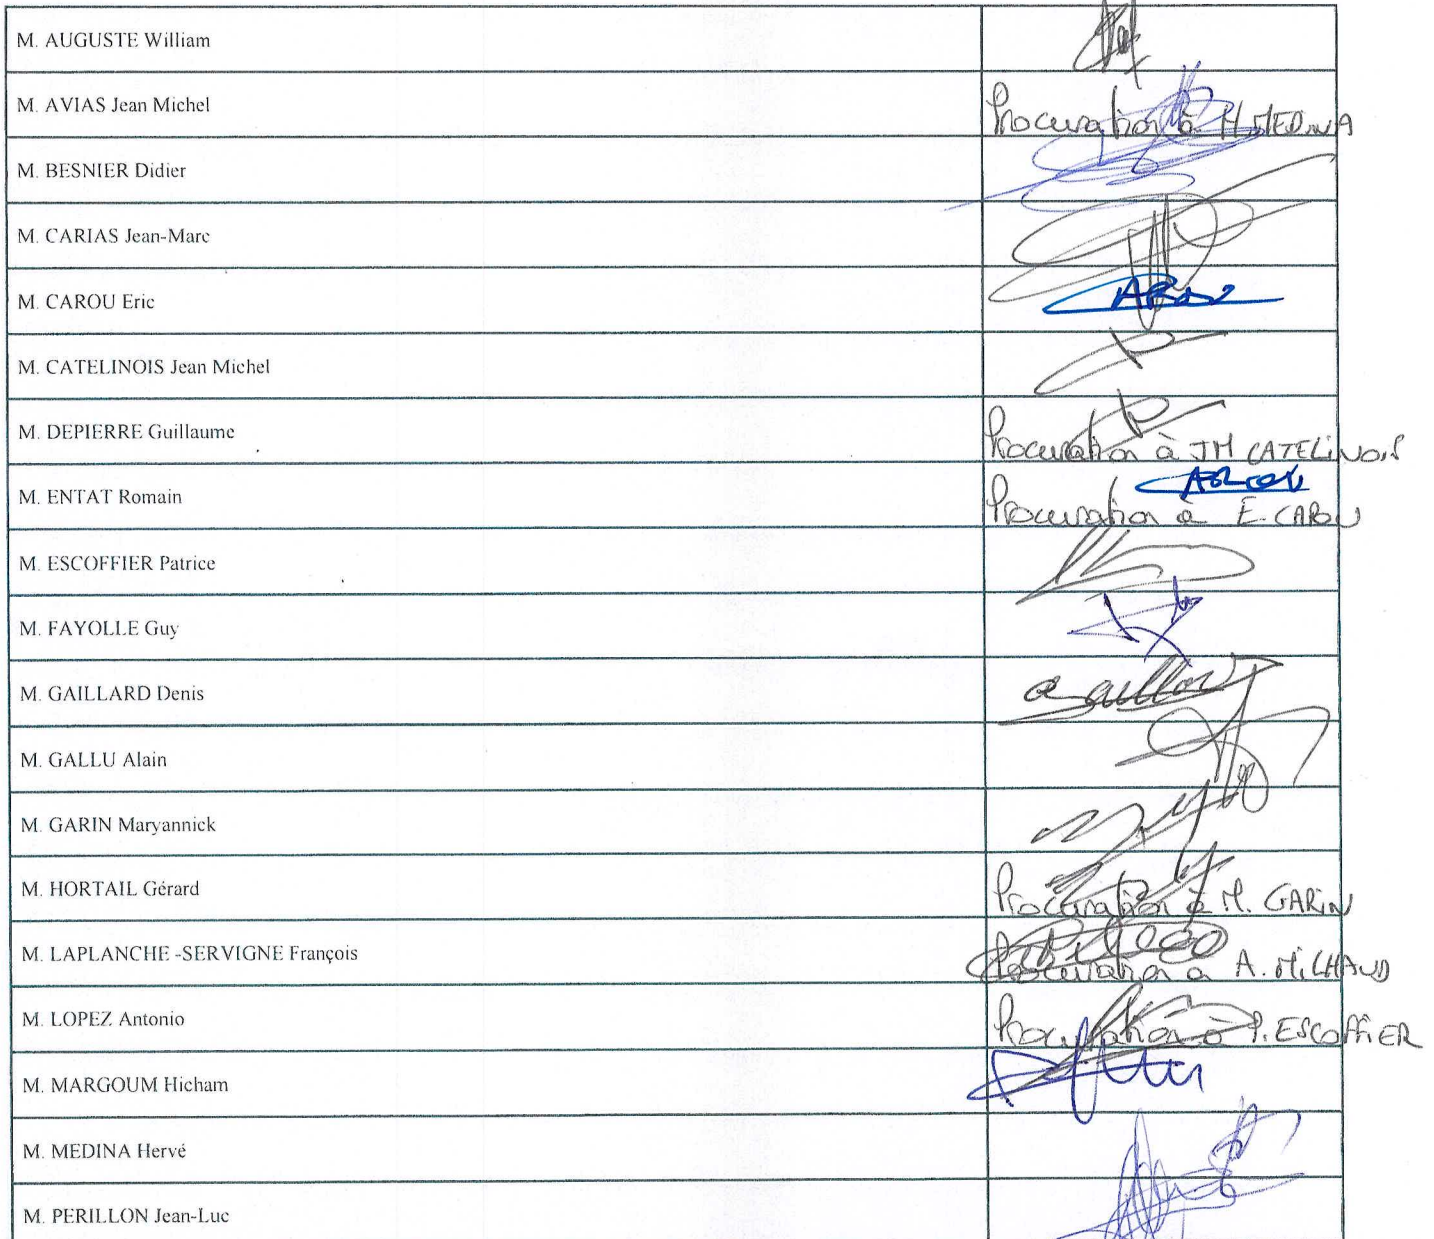 M. AUGUSTE William
M. AVIAS Jean Michel
Procuration à H. MEDINA
M. BESNIER Didier
M. CARIAS Jean-Marc
M. CAROU Eric
CAROU
M. CATELINOIS Jean Michel
M. DEPIERRE Guillaume
Procuration à JM CATELINOIS
M. ENTAT Romain
CAROU
Procuration à E. CAROU
M. ESCOFFIER Patrice
M. FAYOLLE Guy
M. GAILLARD Denis
M. GALLU Alain
M. GARIN Maryannick
M. HORTAIL Gérard
Procuration à M. GARIN
M. LAPLANCHE -SERVIGNE François
Procuration à A. MILHAUD
M. LOPEZ Antonio
Procuration à P. ESCOFFIER
M. MARGOUM Hicham
M. MEDINA Hervé
M. PERILLON Jean-Luc